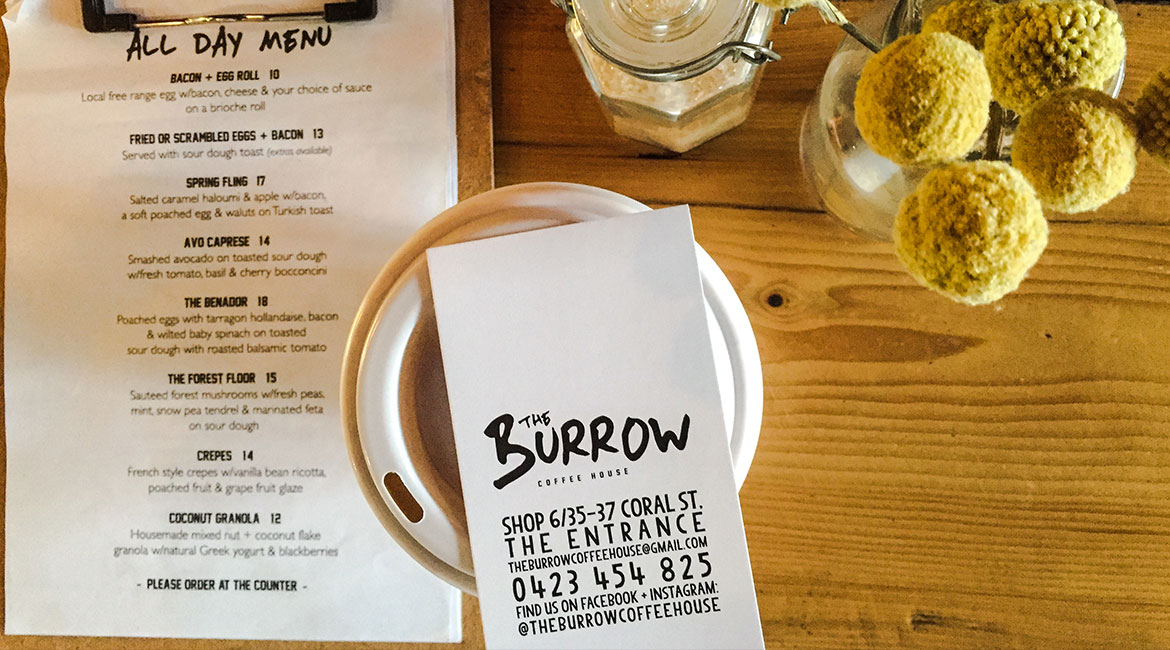 ALL DAY MENU
BACON + EGG ROLL 10
Local free range egg w/bacon, cheese & your choice of sauce
on a brioche roll
FRIED OR SCRAMBLED EGGS + BACON 13
Served with sour dough toast (extras available)
SPRING FLING 17
Salted caramel haloumi & apple w/bacon,
a soft poached egg & waluts on Turkish toast
AVO CAPRESE 14
Smashed avocado on toasted sour dough
w/fresh tomato, basil & cherry bocconcini
THE BENADOR 18
Poached eggs with tarragon hollandaise, bacon
& wilted baby spinach on toasted
sour dough with roasted balsamic tomato
THE FOREST FLOOR 15
Sauteed forest mushrooms w/fresh peas,
mint, snow pea tendrel & marinated feta
on sour dough
CREPES 14
French style crepes w/vanilla bean ricotta,
poached fruit & grape fruit glaze
COCONUT GRANOLA 12
Housemade mixed nut + coconut flake
granola w/natural Greek yogurt & blackberries
- PLEASE ORDER AT THE COUNTER -
THE
BURROW
COFFEE HOUSE
SHOP 6/35-37 CORAL ST.
THE ENTRANCE
THEBURROWCOFFEEHOUSE@GMAIL.COM
0423 454 825
FIND US ON FACEBOOK + INSTAGRAM:
@THEBURROWCOFFEEHOUSE